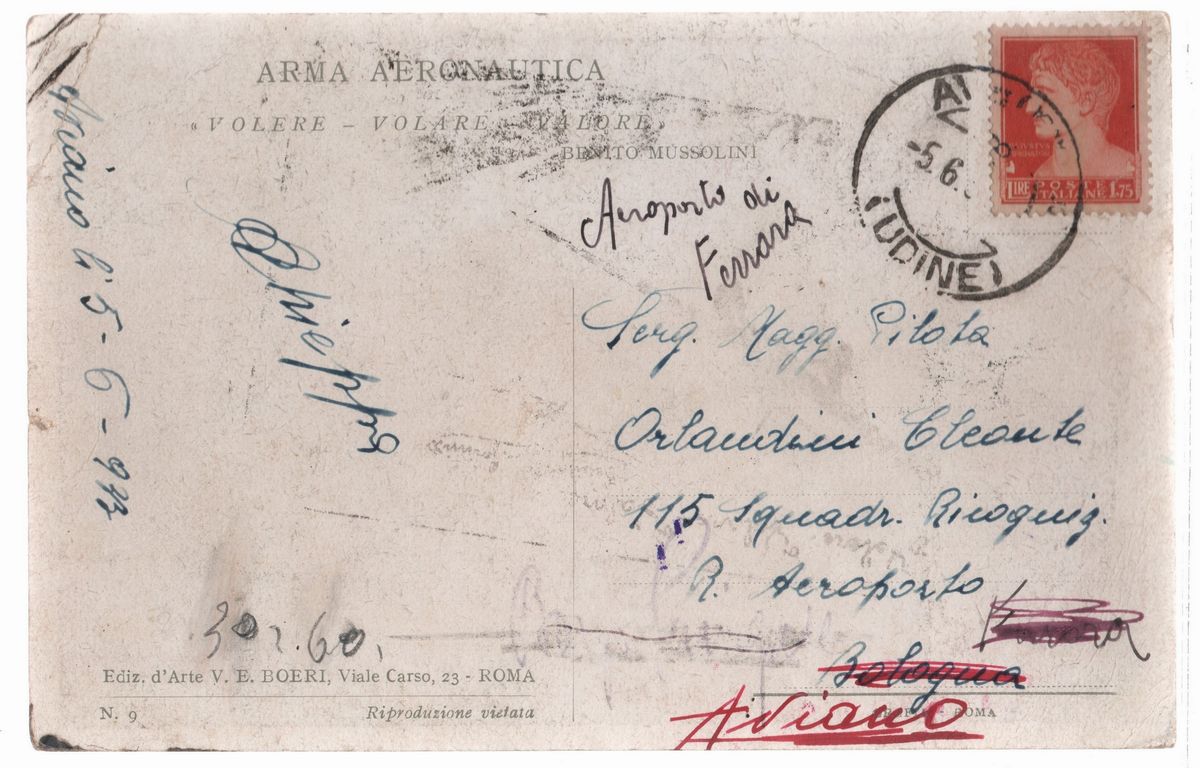 ARMA AERONAUTICA
« VOLERE - VOLARE - VALORE »
BENITO MUSSOLINI
Aeroporto di
Ferrara
Aviano li 5-6-943
LIRE POSTE ITALIANE 1.75
-5.6.
(UDINE)
Serg. Magg. Pilota
Orlandini Cleante
115 Squadr. Ricogniz.
R. Aeroporto
Bologna
Aviano
30 × 60
Ediz. d'Arte V. E. BOERI, Viale Carso, 23 - ROMA
N. 9
Riproduzione vietata
ROMA